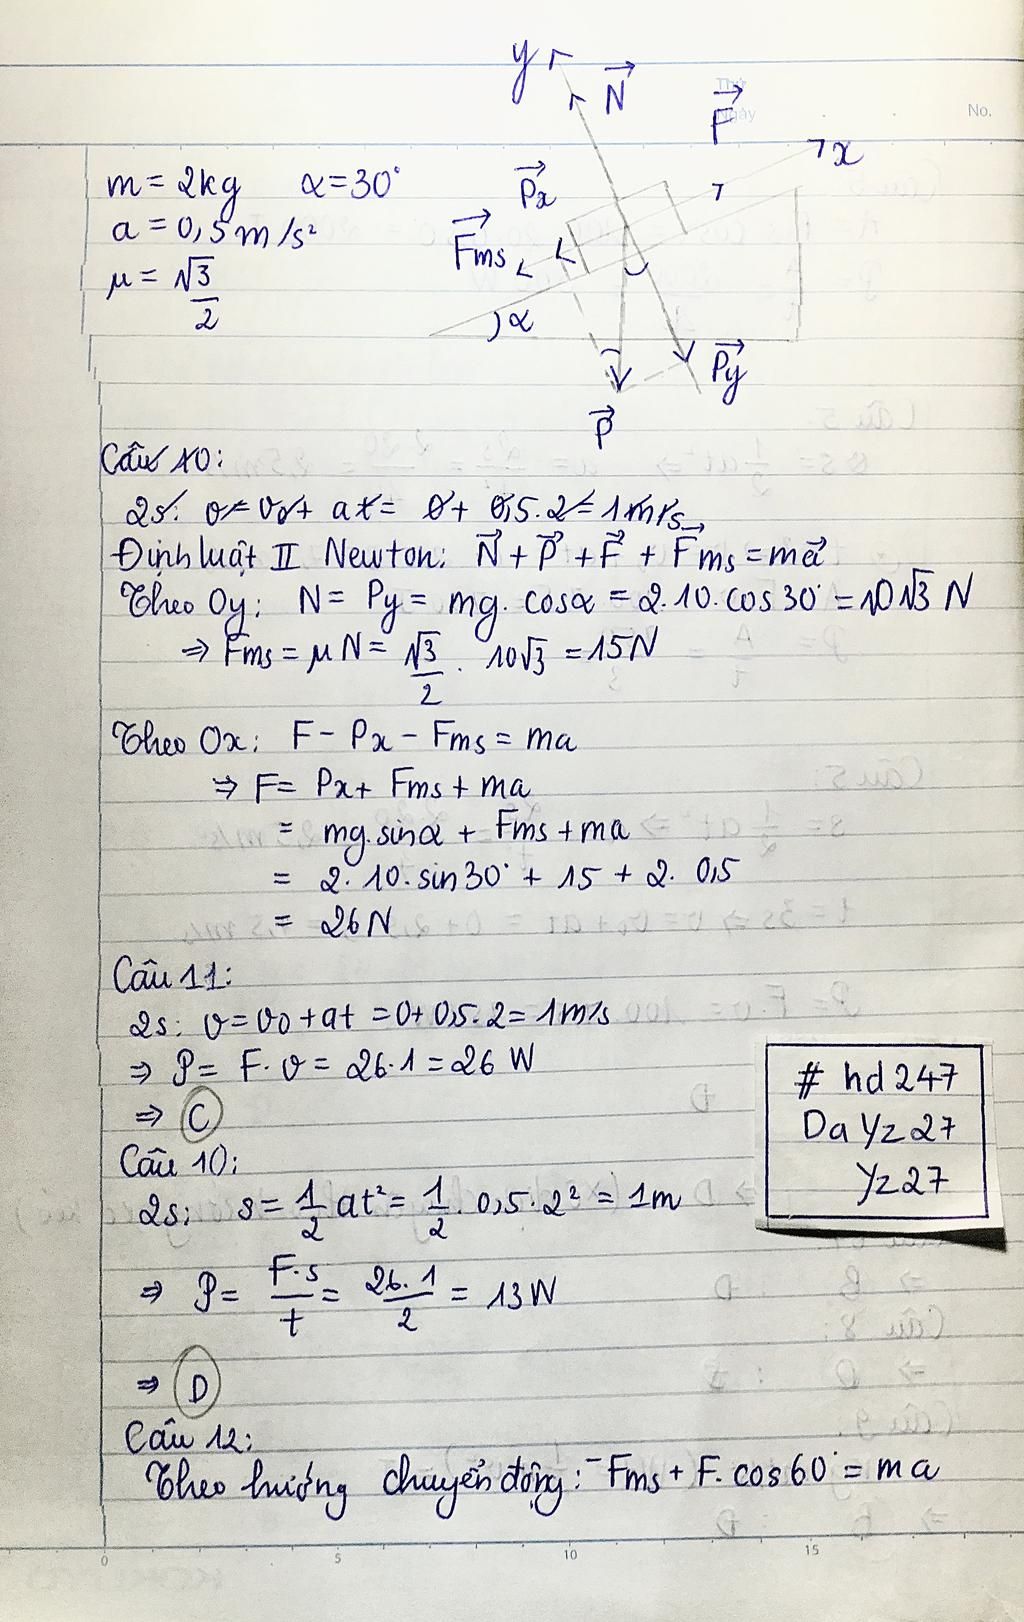 y
N
Thứ
Ngày
F
No.
x
m = 2kg α = 30°
a = 0,5 m/s²
μ = √3/2
Px
Fms
α
Py
P
Câu 10:
2s: v = v₀ + at = 0 + 0,5.2 = 1 m/s
Định luật II Newton: N + P + F + Fms = ma
Theo Oy: N = Py = mg. cosα = 2.10.cos 30° = 10√3 N
⇒ Fms = μN = √3/2 . 10√3 = 15N
Theo Ox: F - Px - Fms = ma
⇒ F = Px + Fms + ma
= mg.sinα + Fms + ma
= 2.10.sin30° + 15 + 2. 0,5
= 26N
Câu 11:
2s: v = v₀ + at = 0 + 0,5.2 = 1m/s
⇒ P = F. v = 26.1 = 26 W
⇒ C
# hd247
DaYz27
Yz27
Câu 10:
2s: s = 1/2 at² = 1/2 . 0,5.2² = 1m
⇒ P = F.s/t = 26.1/2 = 13W
⇒ D
Câu 12:
Theo hướng chuyển động: -Fms + F. cos60° = ma
0 5 10 15